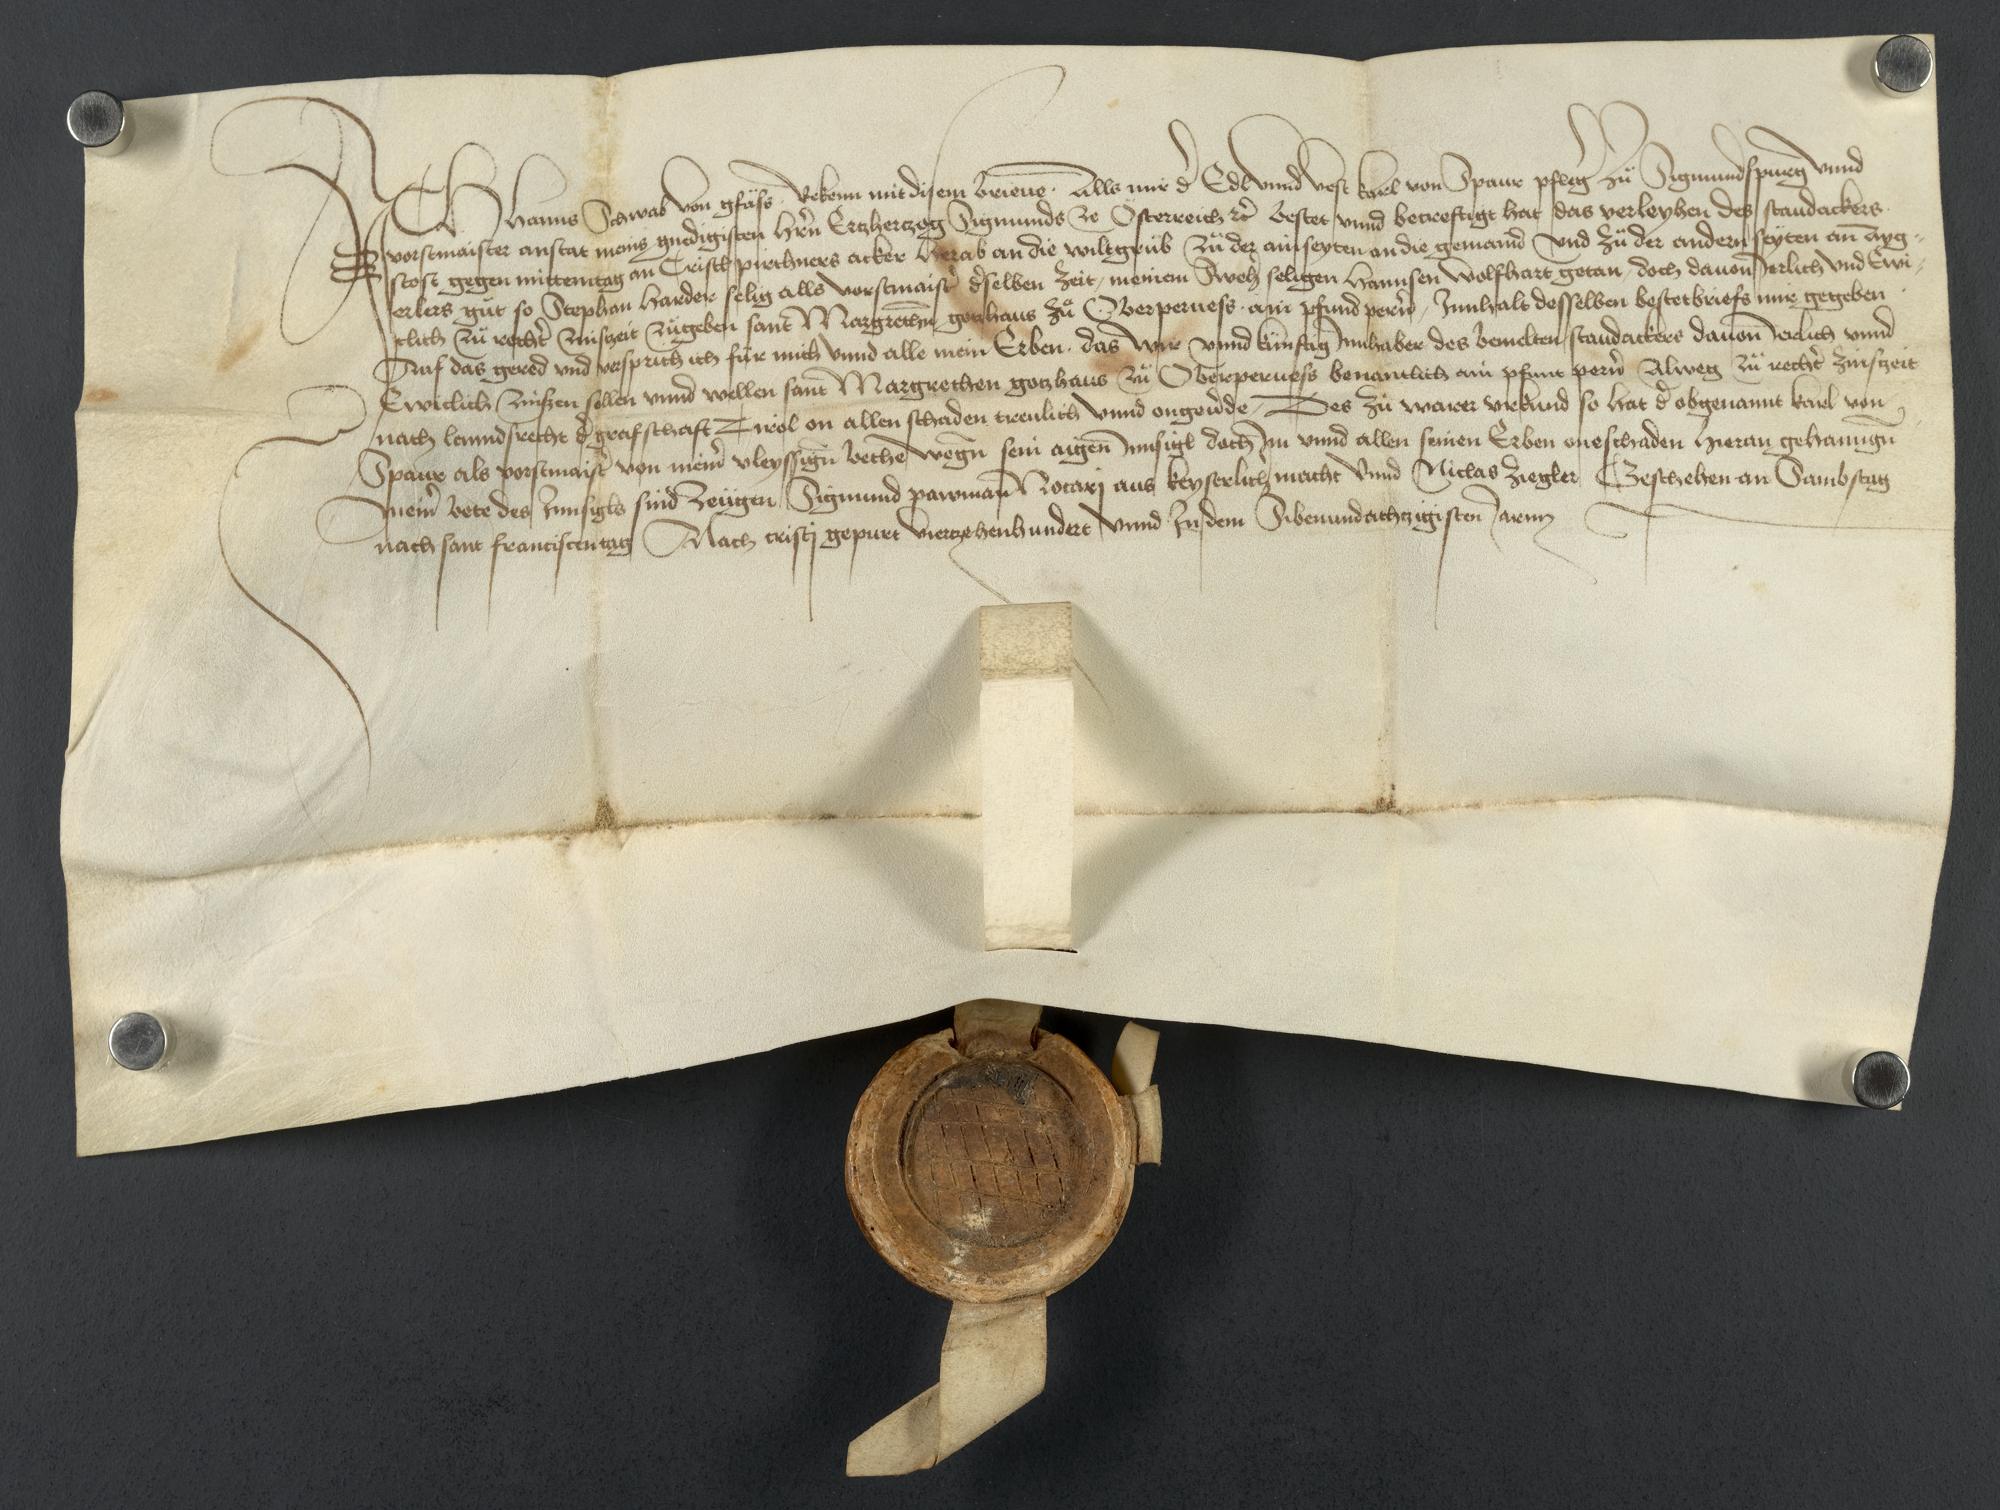 Ich hanns Schwab von gfäss Vekenn mit disem brieue · Alls mir d' Edl vnnd vest karl von Spaur pfleg' zů Sigmundspurg vnnd
vorstmaister anstat meins gnedigisten hr̄n Ertzhertzog Sigmunds ze Österreich rc̄ bestet vnnd becreftigt hat das verleyhen des staudackers
stost gegen mittemtag an Cristl pirchners acker herab an die wiltgrůb zů der ainseyten an die gemaind vnd zů der andern seyten an ayg-
erlers gůt so Stephan harder selig alls vorstmaist' d'selben zeit, meinem Sweh' seligen hannsen wolfhart getan, doch dauon Ierlich vnd Ewi-
clich zů recht' zinszeit zůgeben sant Margrethen gotzhaus zů Oberperuess ain pfund pern', Innhalt desselben bestetbriefs mir gegeben
Auf das gered vnd versprich ich für mich vnnd alle mein Erben · das wir vnnd künftig Innhaber des bemelten staudackers dauon ierlich vnnd
Ewiclich zinszen sollen vnnd wellen sant Margrethen gotzhaus zů Oberperuess benantlich ain pfunt pern' Alweg zů recht' zinszeit
nach lanndsrecht d' grafschaft Tirol on allen schaden treulich vnnd ongeu'de, Des zů warer vrkund so hat d' obgenannt karl von
Spaur als vorstmaist' von mein' vleyssign̄ bethe wegn̄ sein aigen Innsigl doch Im vnnd allen seinen Erben oneschaden hieran gehanngn̄
Mein' bete des Innsigls sind zeugen Sigmund pawman Notarj aus keyserlich' macht vnnd Niclas ziegler Geschehen an Sambstag
nach sant franciscentag Nach cristj gepurt vierzehenhundert vnnd In dem Sibenundachtzigisten Jaren